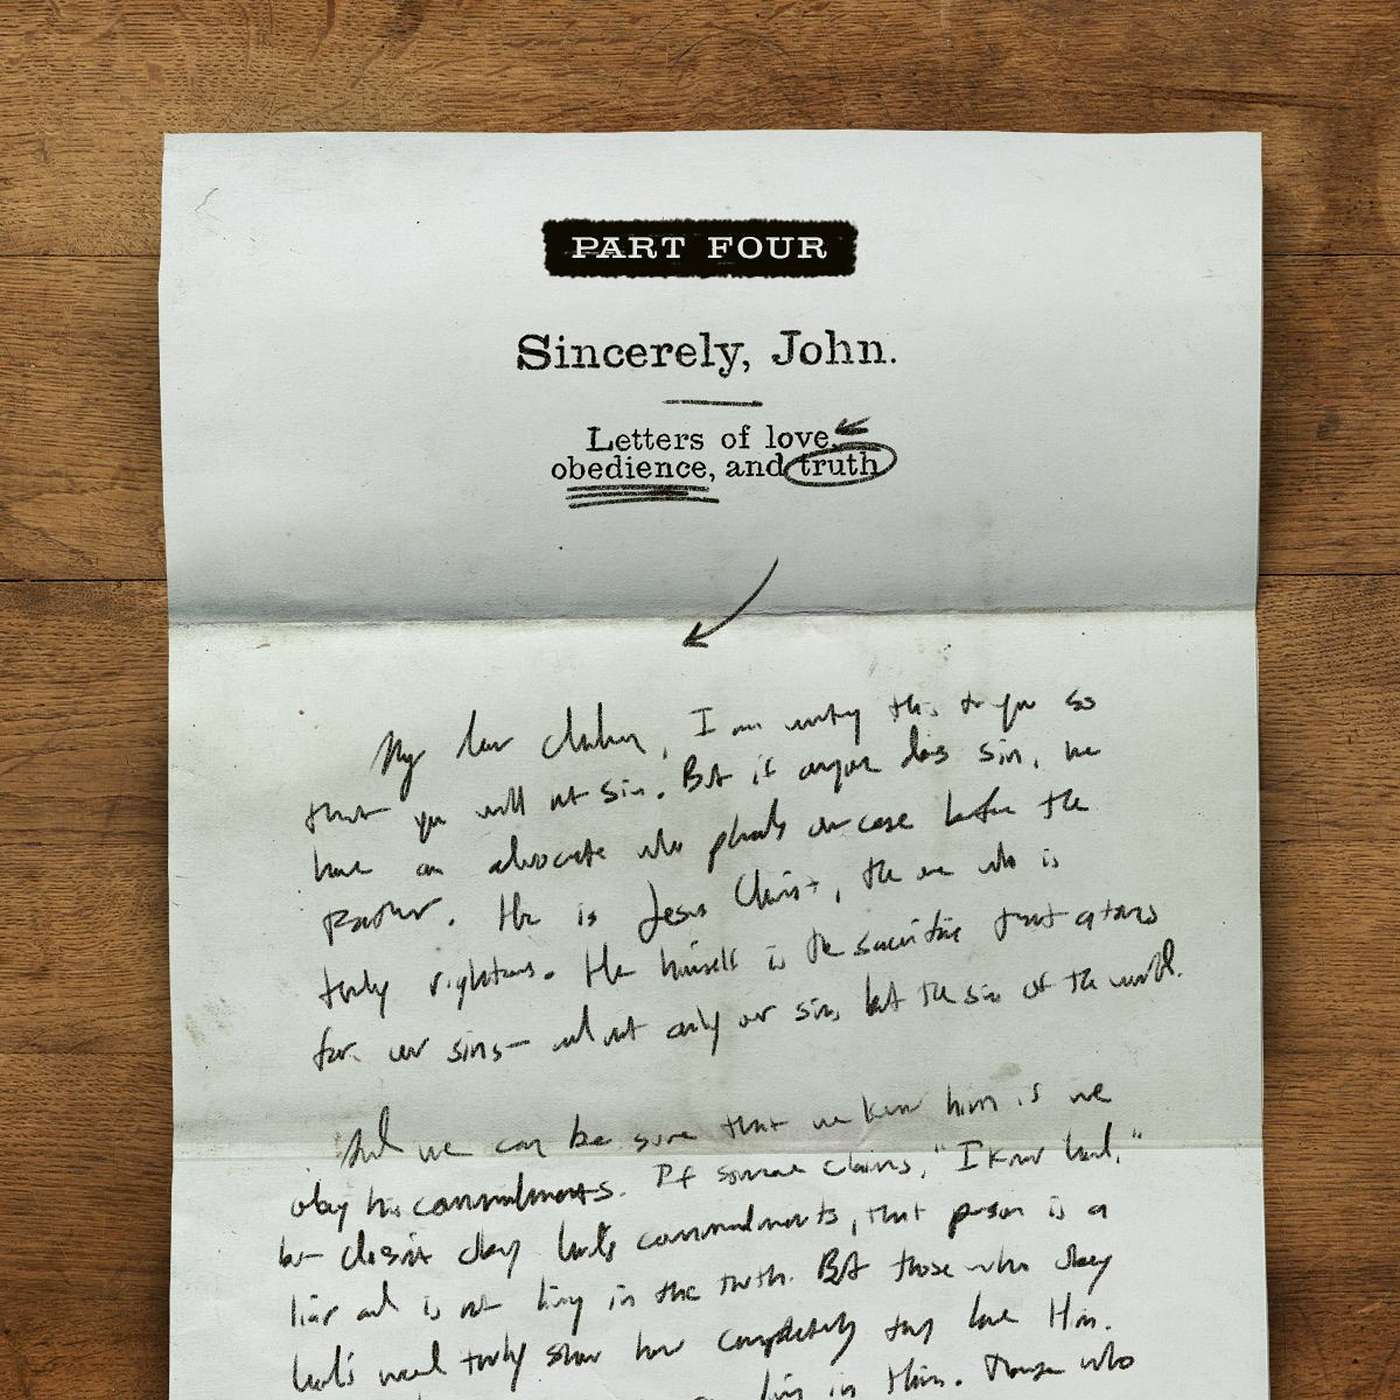 PART FOUR
Sincerely, John.
Letters of love,
obedience, and truth
My dear children, I am writing this to you so
that you will not sin. But if anyone does sin, we
have an advocate who pleads our case before the
Father. He is Jesus Christ, the one who is
truly righteous. He himself is the sacrifice that atones
for our sins— and not only our sins but the sins of the world.
And we can be sure that we know him if we
obey his commandments. If someone claims, "I know God,"
but doesn't obey God's commandments, that person is a
liar and is not living in the truth. But those who obey
God's word truly show how completely they love Him.
live in Him. Those who